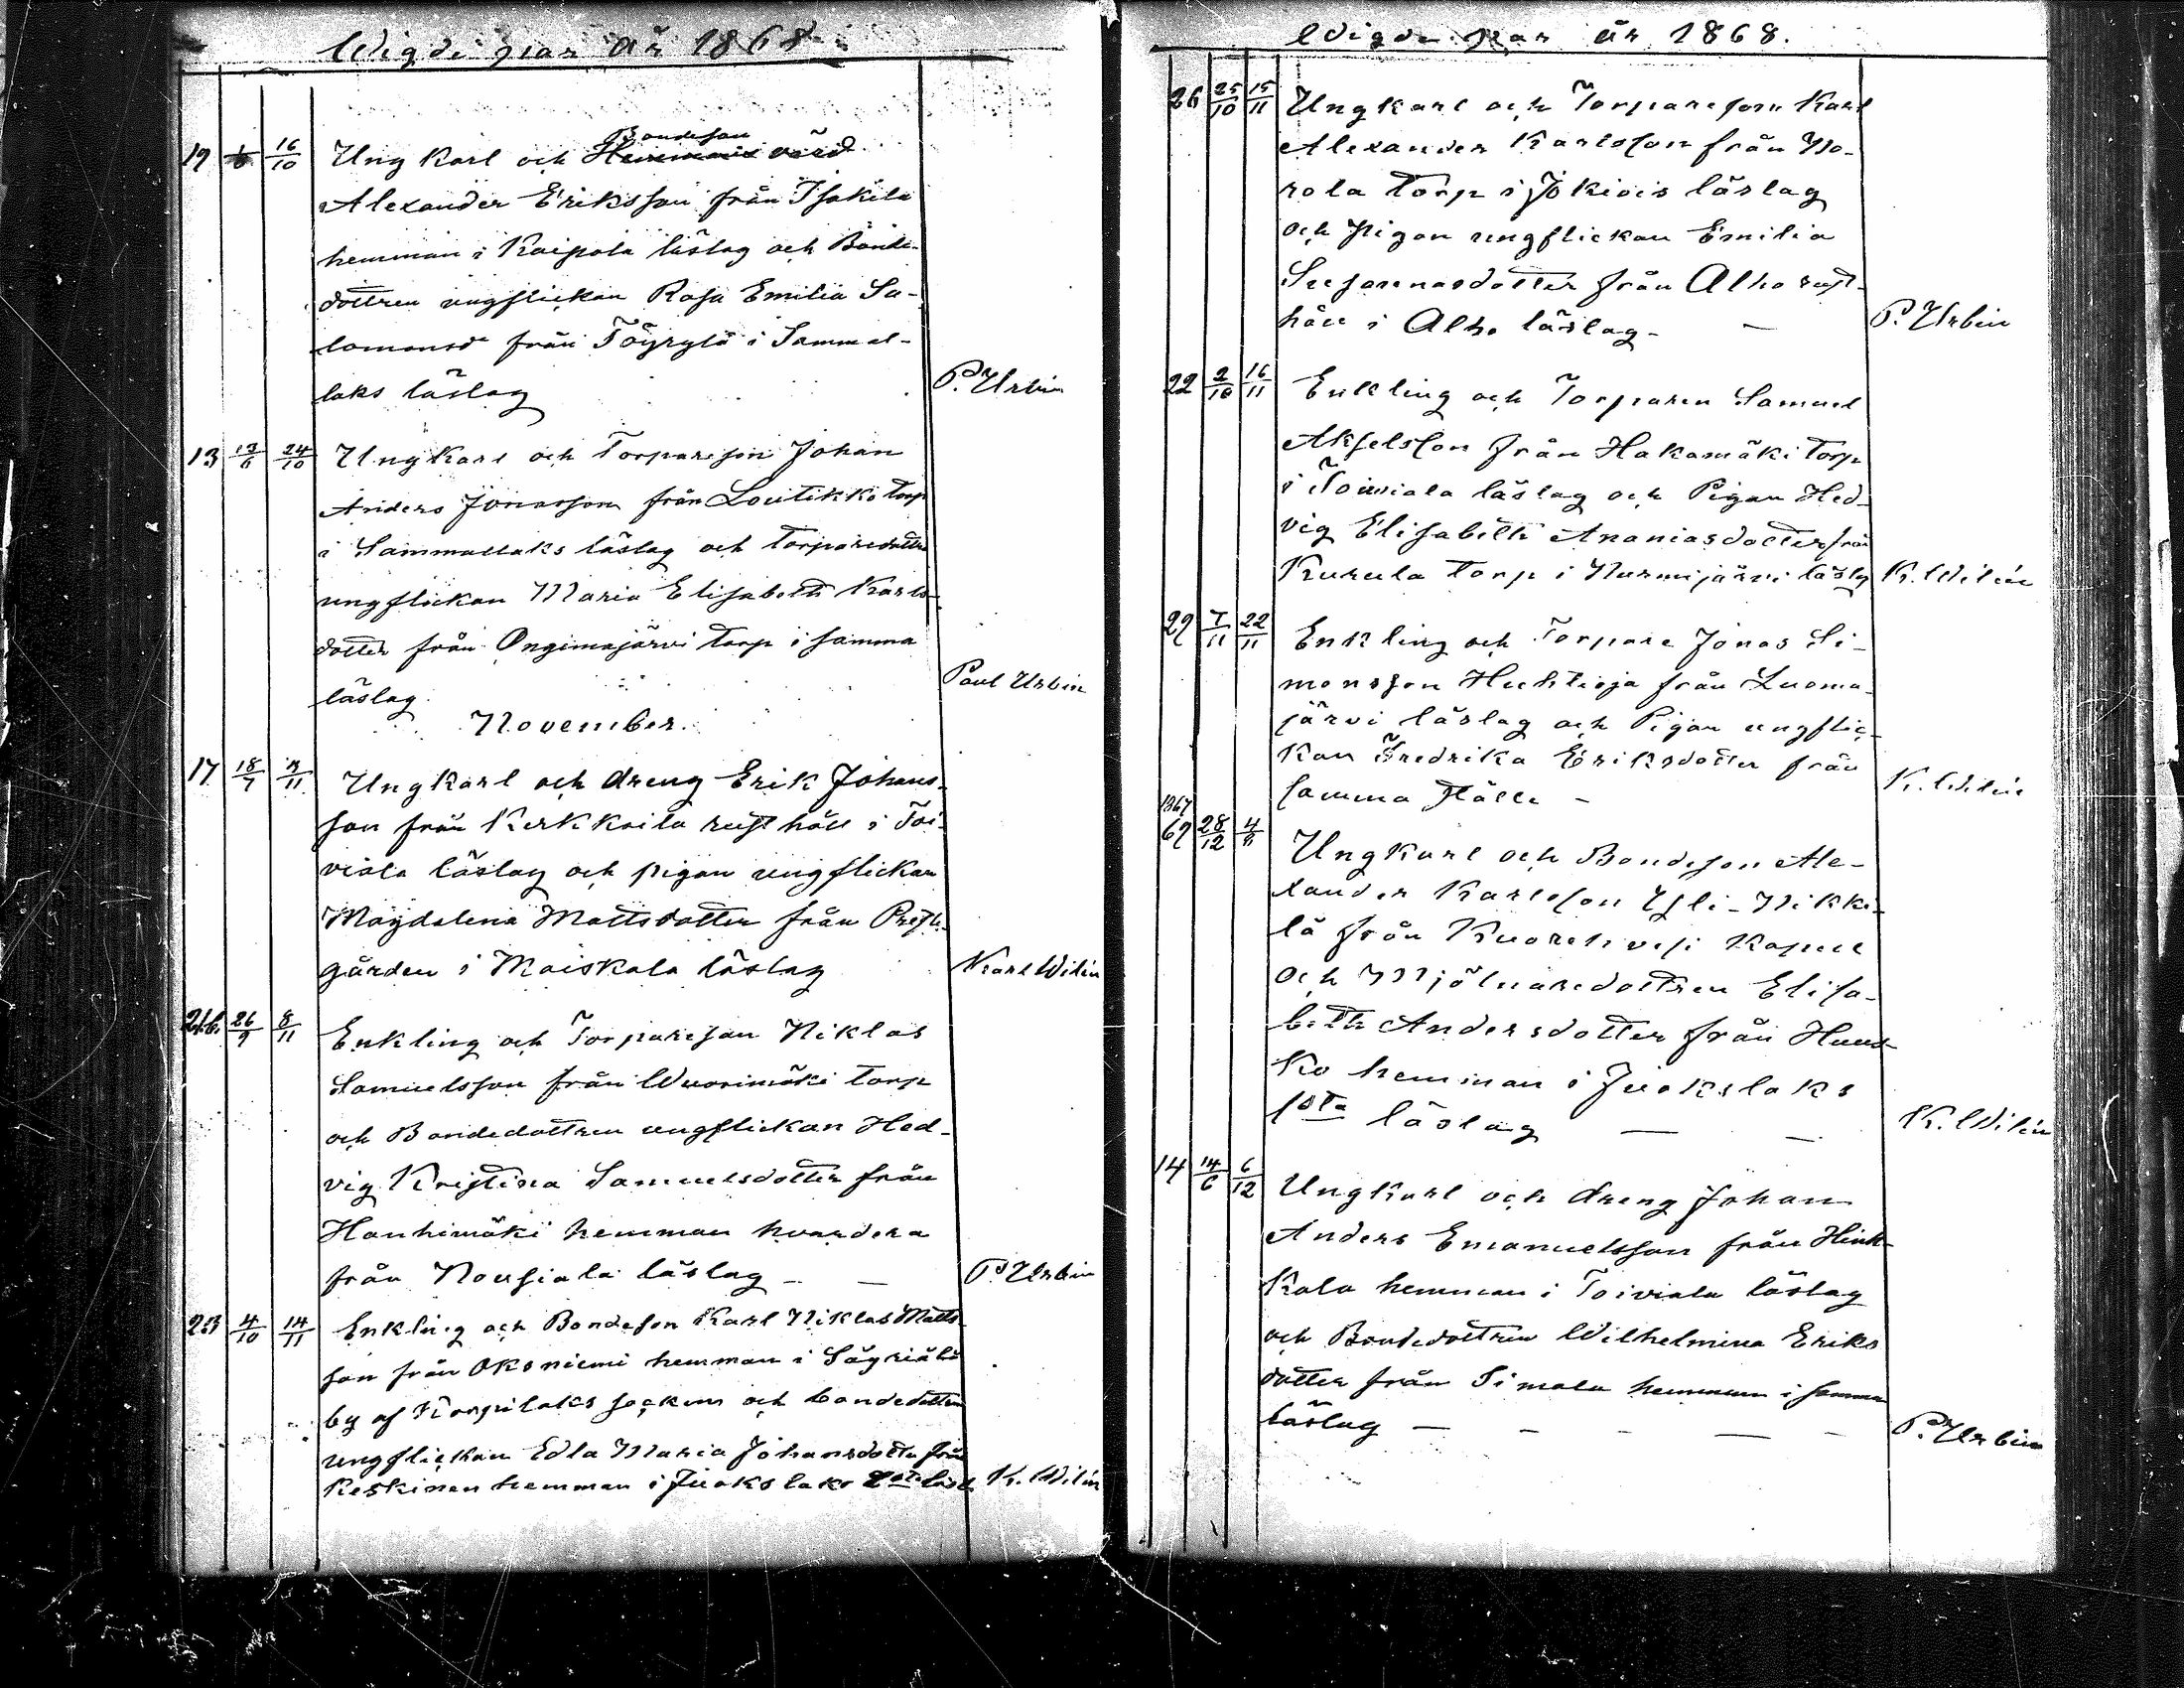 Wigde par år 1868.
19 16/10 Ungkarl och Bondeson
Alexander Eriksson från Isakila
hemman i Kaipola läslag och Bonde-
dottren ungflickan Rosa Emilia Sa-
lomonsdr från Töyrylä i Sammal-
laks läslag P. Urbin
13 13/6 24/10 Ungkarl och Torpareson Johan
Anders Jonasson från Loutikko torp
i Sammallaks läslag och torparedottren
ungflickan Maria Elisabeth Karls-
dotter från Ongimajärvi torp i samma
läslag Paul Urbin
November.
17 18/7 /11 Ungkarl och dreng Erik Johans-
son från Kerkkoila rusthåll i Toi-
viala läslag och pigan ungflickan
Magdalena Mattsdotter från Prest-
gården i Maiskala läslag Karl Wilén
26/9 8/11 Enkling och Torpareson Niklas
Samuelsson från Wuorimäki torp
och Bondedottren ungflickan Hed-
vig Kristina Samuelsdotter från
Hanhimäki hemman hvardera
från Nousiala läslag - — P. Urbin
23 4/10 14/11 Enkling och Bondeson Karl Niklas Matts-
son från Oksniemi hemman i
by af Korpilaks socken och bondedottren
ungflickan Edla Maria Johansdotter från
Keskinen hemman i Juokslaks K. Wilén
Wigde par år 1868.
26 25/10 15/11 Ungkarl och Torpareson Karl
Alexander Karlsson från No-
rola torp i Jokiois läslag
och pigan ungflickan Emilia
Susannasdotter från Alho rust-
håll i Alho läslag - — P. Urbin
22 2/10 16/11 Enkling och Torparen Samuel
Akselsson från Hakamäki torp
i Toiviala läslag och Pigan Hed-
vig Elisabeth Ananiasdotter från
Kurula torp i Nurmijärvi läslg K. Wilén
29 7/11 22/11 Enkling och Torpare Jonas Si-
monsson Huhtioja från Luoma-
järvi läslag och Pigan ungflic-
kan Fredrika Eriksdotter från
samma ställe - K. Wilén
1867
69 28/12 4/ Ungkarl och Bondeson Ale-
xander Karlsson Yli-Nikki-
lä från Kuorehvesi Kapell
och Mjölnaredottren Elisa-
beth Andersdotter från Huuh-
ko hemman i Juokslaks
1sta läslag — - K. Wilén
14 14/6 6/12 Ungkarl och dreng Johan
Anders Emanuelsson från Hink-
kala hemman i Toiviala läslag
och Bondedottren Wilhelmina Eriks
dotter från Simola hemman i samma
läslag — - - — - P. Urbin